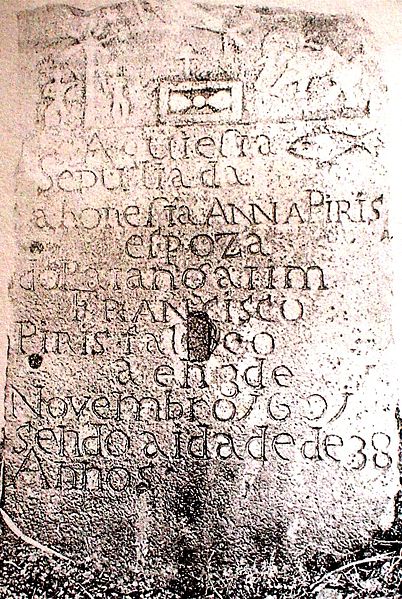 Aqui esta
Sepultada
a honesta ANNA PIRIS
espoza
do Patangatim
FRANCISCO
PIRIS
a en 3 de
Novembro 1691
sendo a idade de 38
Annos